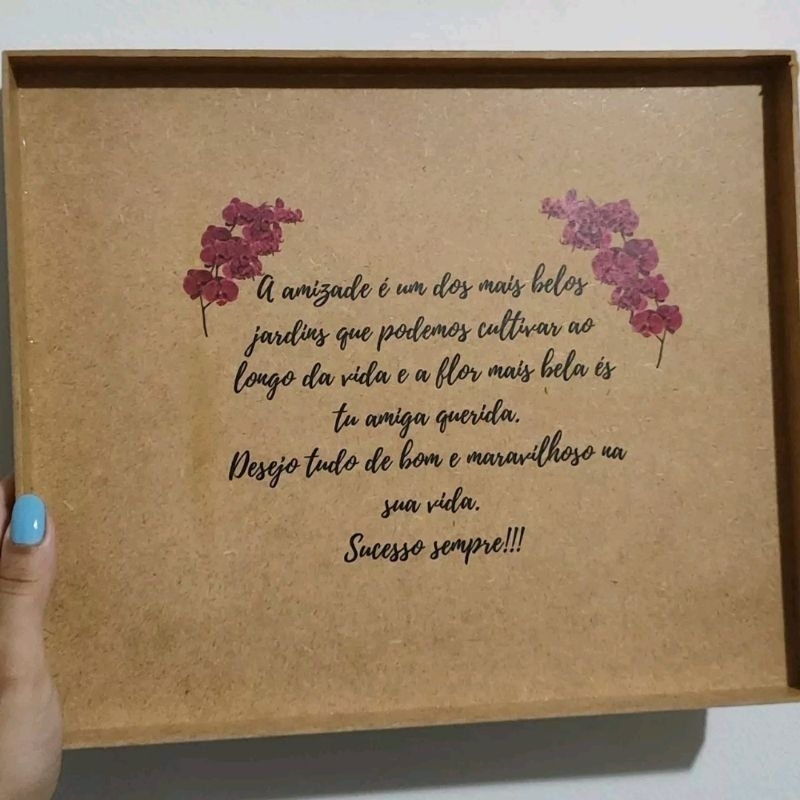 A amizade é um dos mais belos
jardins que podemos cultivar ao
longo da vida e a flor mais bela és
tu amiga querida.
Desejo tudo de bom e maravilhoso na
sua vida.
Sucesso sempre!!!